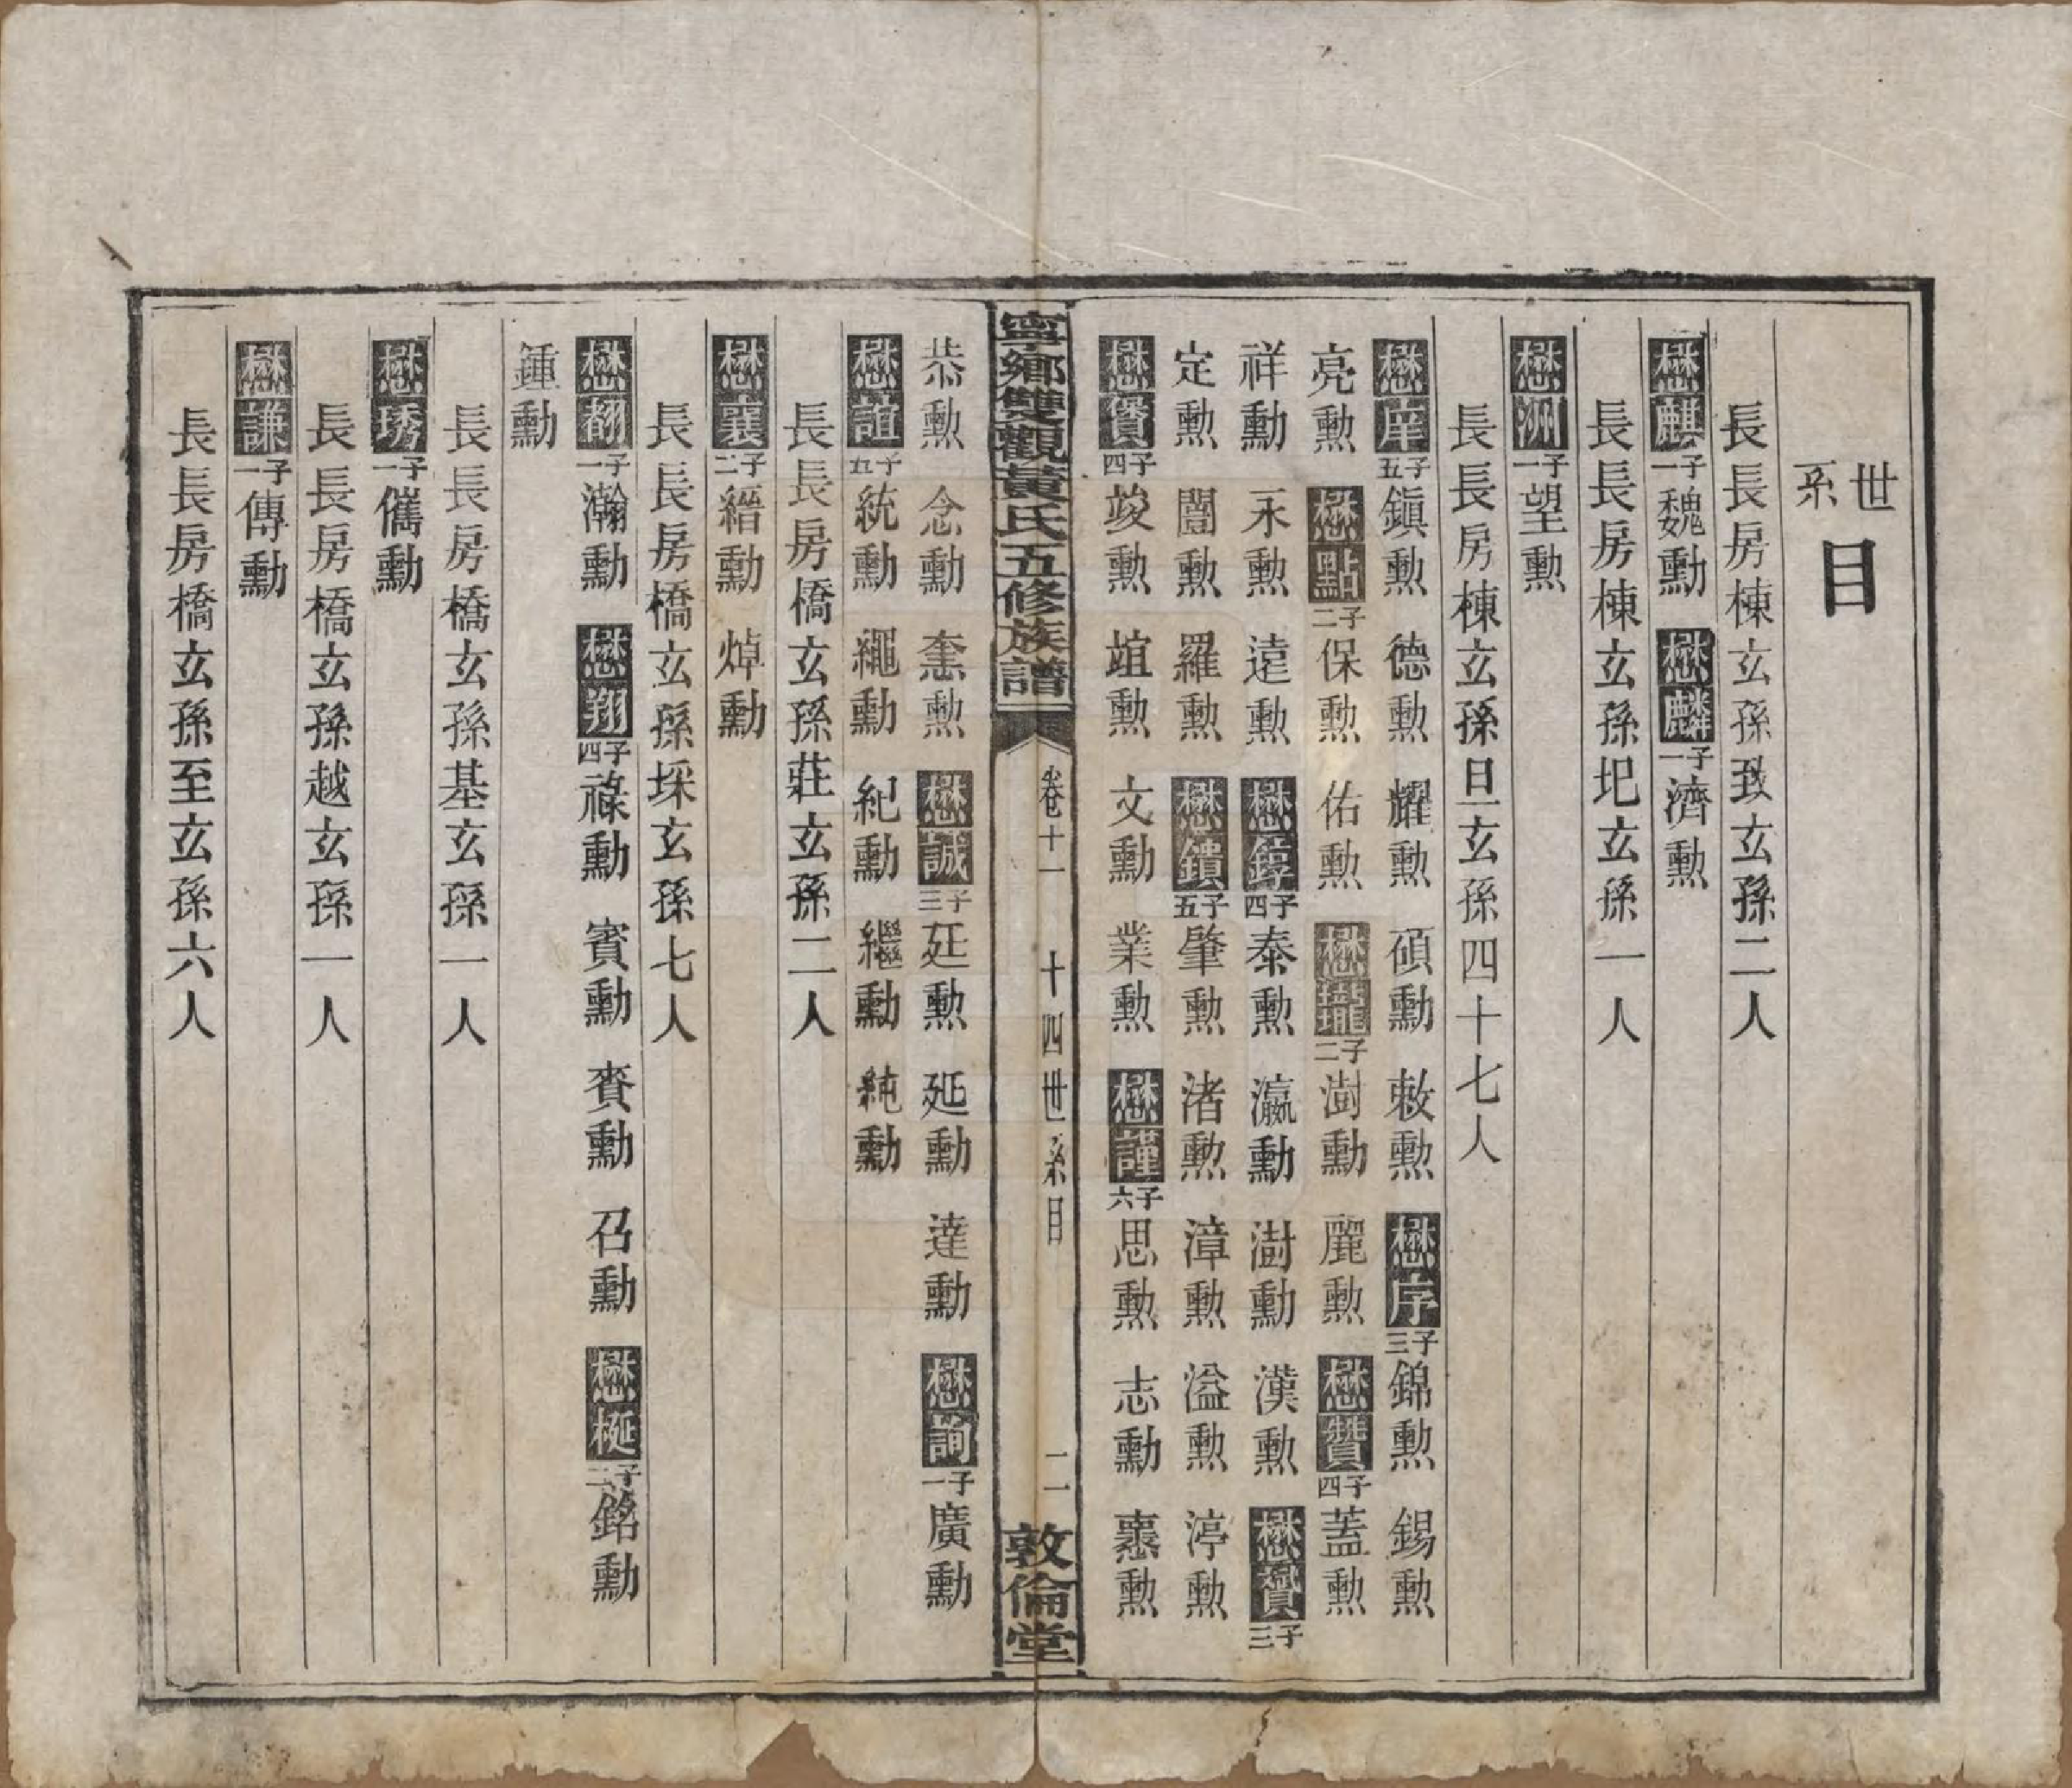 世系目
長長房棟玄孫致玄孫二人
懋麒一子魏勳 懋麟一子濟勳
長長房棟玄孫圯玄孫一人
懋洲一子望勳
長長房棟玄孫旦玄孫四十七人
懋庠五子鎮勳 德勳 耀勳 碩勳 敕勳 懋序三子錦勳 錫勳
亮勳 懋點二子保勳 佑勳 懋瓏二子澍勳 麗勳 懋贊四子蓋勳
祥勳 永勳 遠勳 懋錞四子泰勳 瀛勳 澍勳 漢勳 懋贇三子
定勳 闓勳 羅勳 懋鐨五子肇勳 渚勳 漳勳 溢勳 渟勳
懋賨四子竣勳 竩勳 文勳 業勳 懋謹六子思勳 志勳 悳勳
寧鄉雙觀黃氏五修族譜 卷十一 十四世系目 二 敦倫堂
恭勳 念勳 懋誠三子廷勳 延勳 達勳 懋詢一子廣勳
懋誼五子統勳 繩勳 紀勳 繼勳 純勳
長長房橋玄孫莊玄孫二人
懋襄二子縉勳 焯勳
長長房橋玄孫埰玄孫七人
懋翷一子瀚勳 懋翔四子祿勳 賓勳 賚勳 召勳 懋梴二子銘勳
鍾勳
長長房橋玄孫基玄孫一人
懋琇一子儁勳
長長房橋玄孫越玄孫一人
懋謙一子傳勳
長長房橋玄孫至玄孫六人